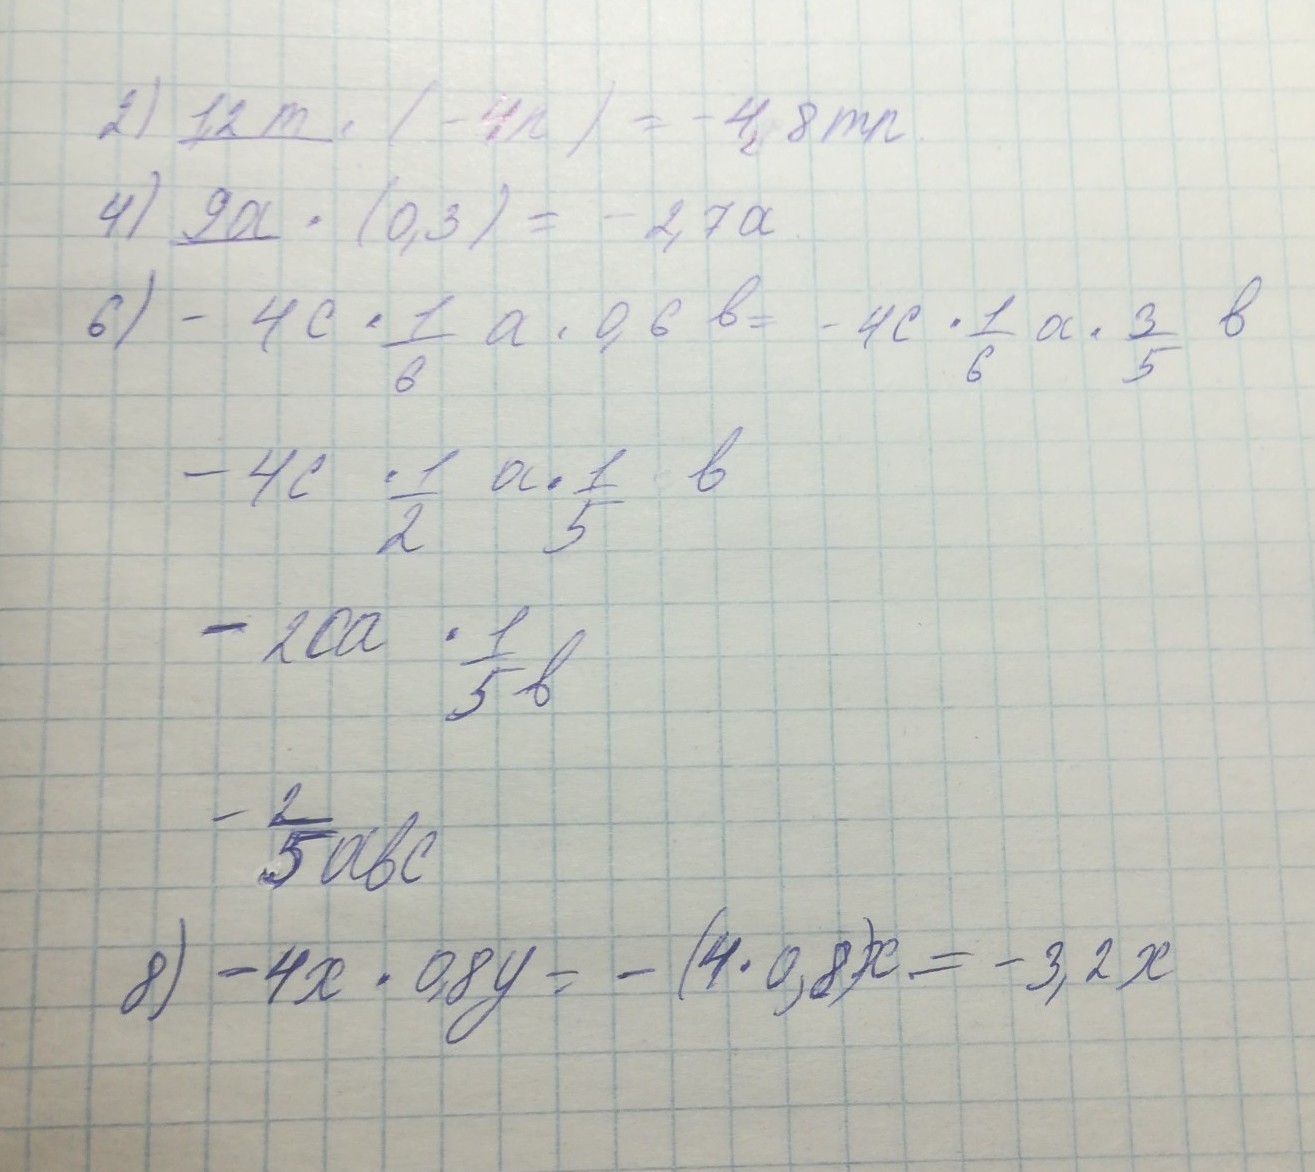 2) 1,2 m · (-4n) = -4,8mn
4) 9a · (0,3) = -2,7a
6) - 4c · 1/6 a · 0,6 b = -4c · 1/6 a · 3/5 b
-4c · 1/2 a · 1/5 b
-2ca · 1/5 b
- 2/5 abc
8) -4x · 0,8y = -(4·0,8)x = -3,2x